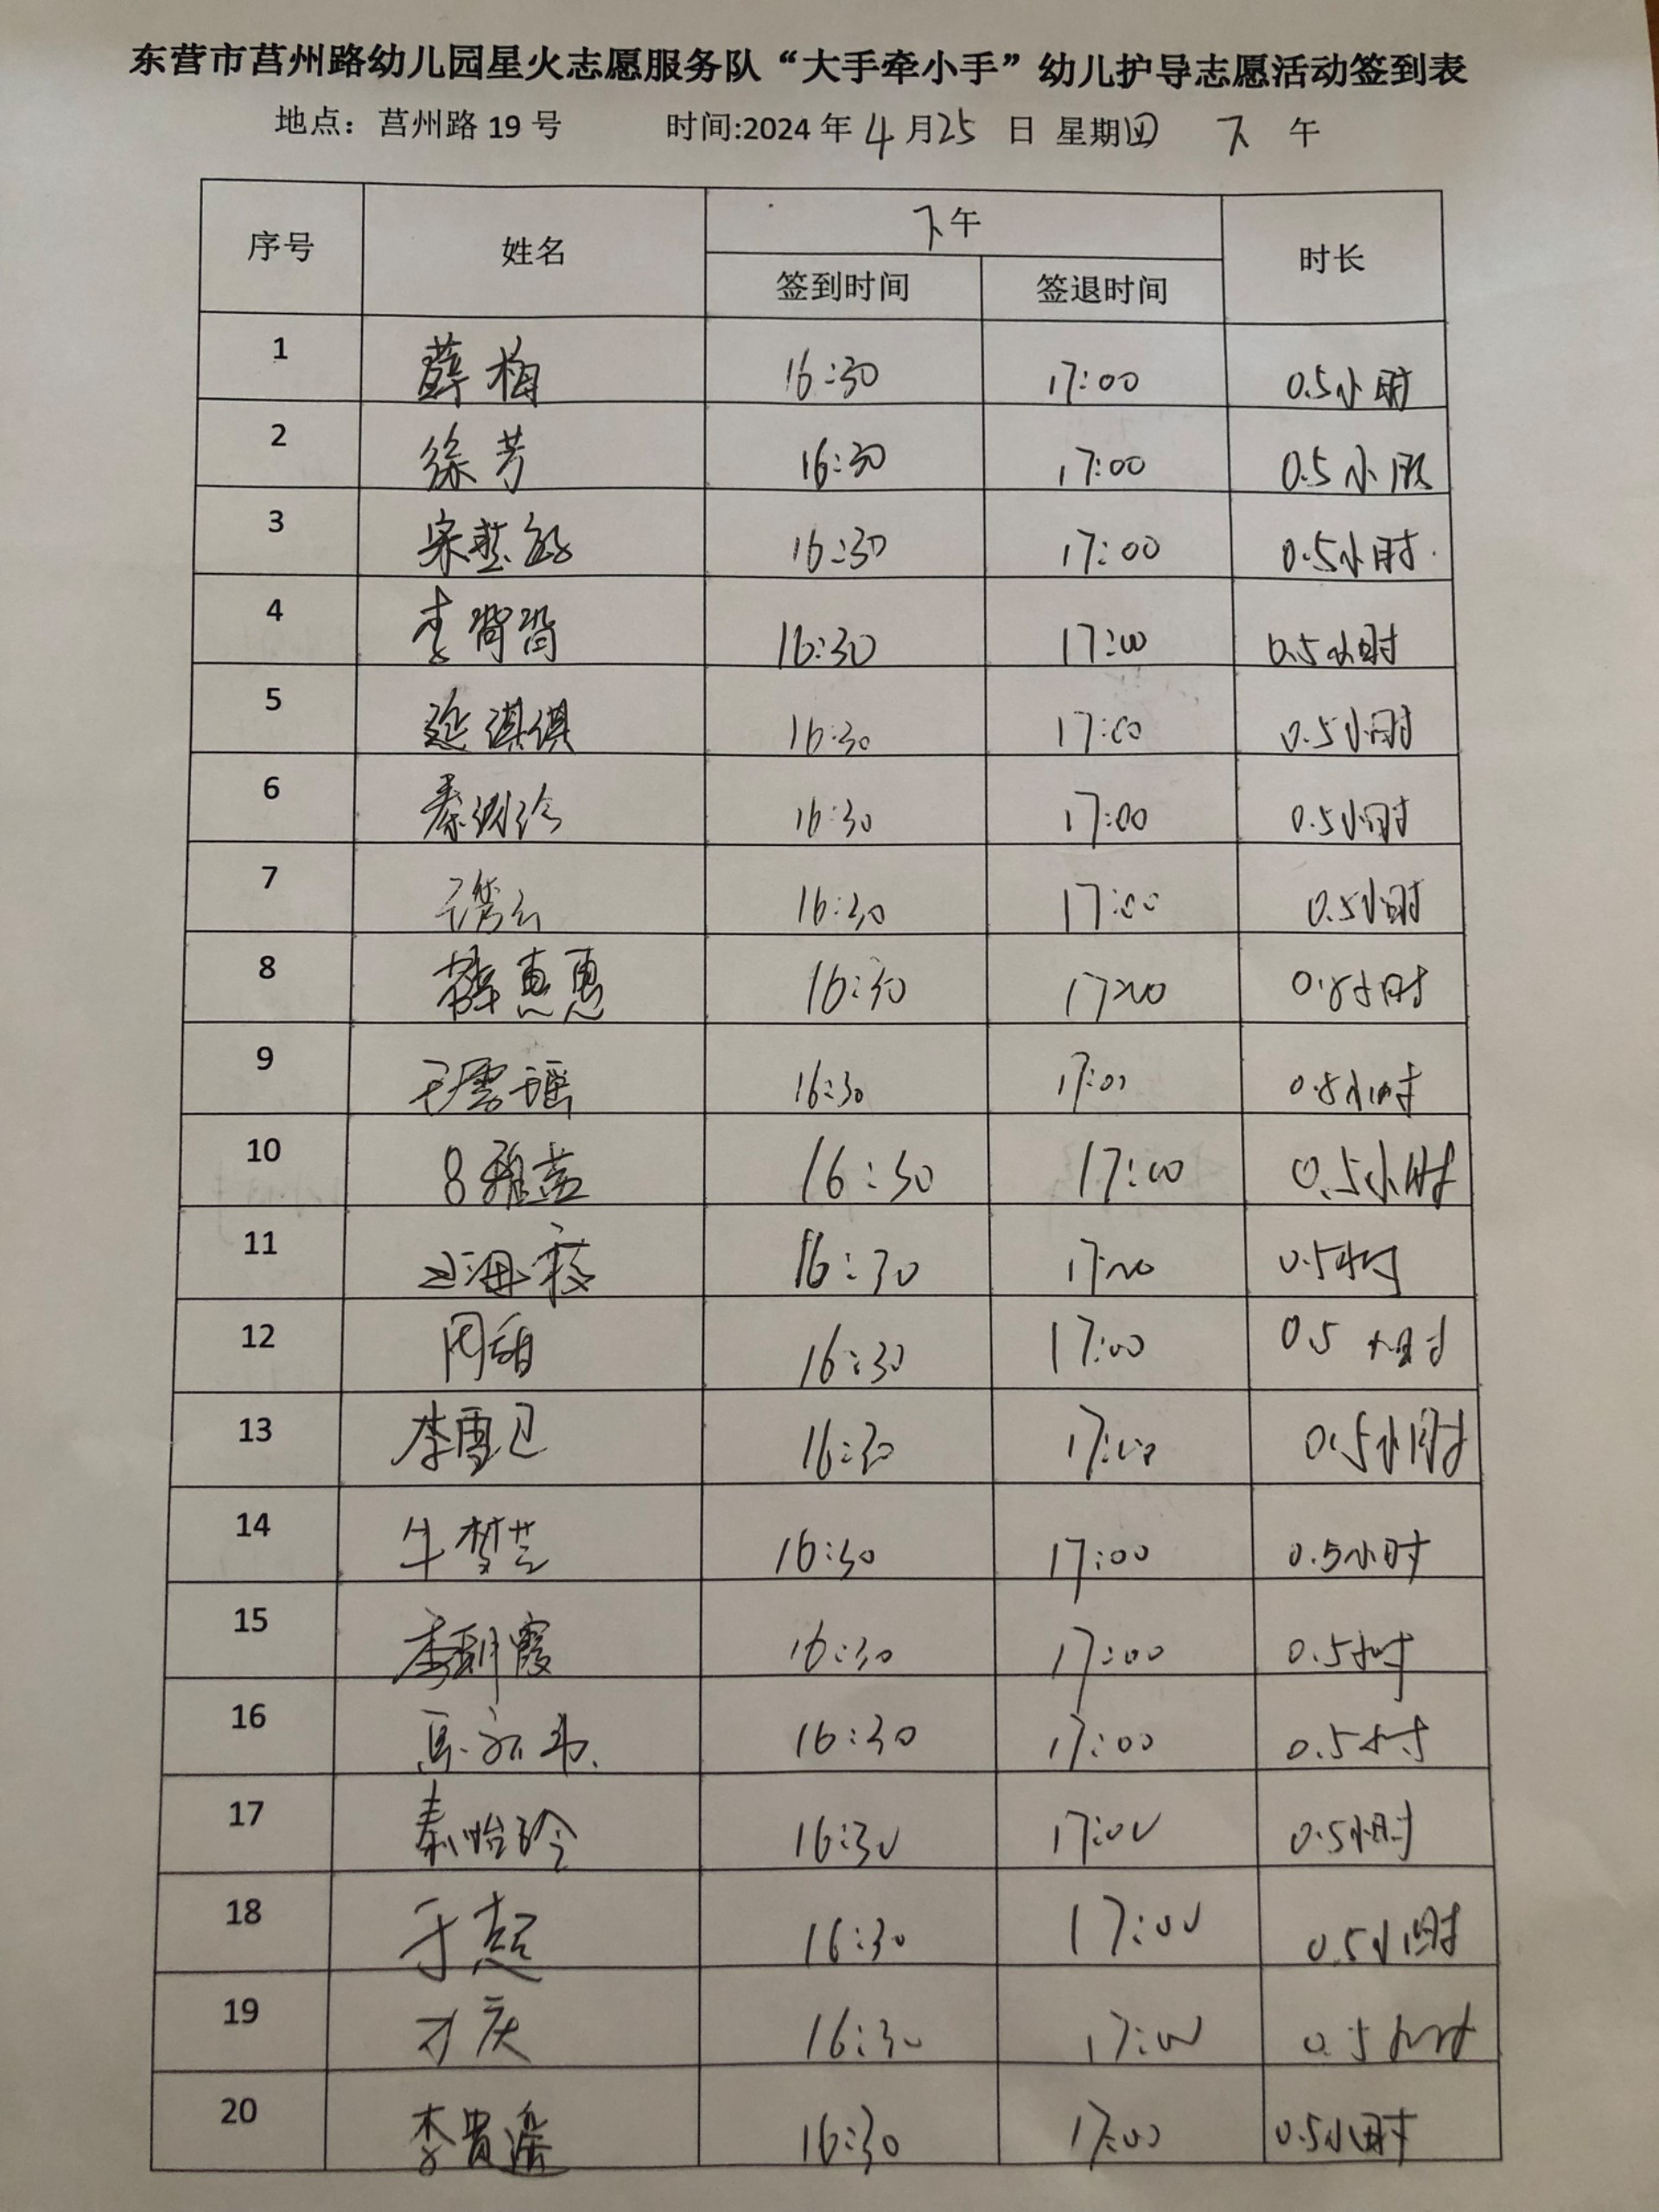 东营市莒州路幼儿园星火志愿服务队“大手牵小手”幼儿护导志愿活动签到表
地点：莒州路 19 号 时间:2024 年 4 月 25 日 星期四 下 午
序号 姓名 下午 时长
签到时间 签退时间
1 薛梅 16:30 17:00 0.5小时
2 徐芳 16:30 17:00 0.5小时
3 宋慧敏 16:30 17:00 0.5小时
4 李 16:30 17:00 0.5小时
5 延 16:30 17:00 0.5小时
6 秦 16:30 17:00 0.5小时
7 16:30 17:00 0.5小时
8 薛惠惠 16:30 17:00 0.5小时
9 王雪瑶 16:30 17:00 0.5小时
10 雅 16:30 17:00 0.5小时
11 海 16:30 17:00 0.5小时
12 周甜 16:30 17:00 0.5小时
13 李雪卫 16:30 17:00 0.5小时
14 牛梦芸 16:30 17:00 0.5小时
15 李朝霞 16:30 17:00 0.5小时
16 16:30 17:00 0.5小时
17 秦怡玲 16:30 17:00 0.5小时
18 于超 16:30 17:00 0.5小时
19 庆 16:30 17:00 0.5小时
20 李贵 16:30 17:00 0.5小时